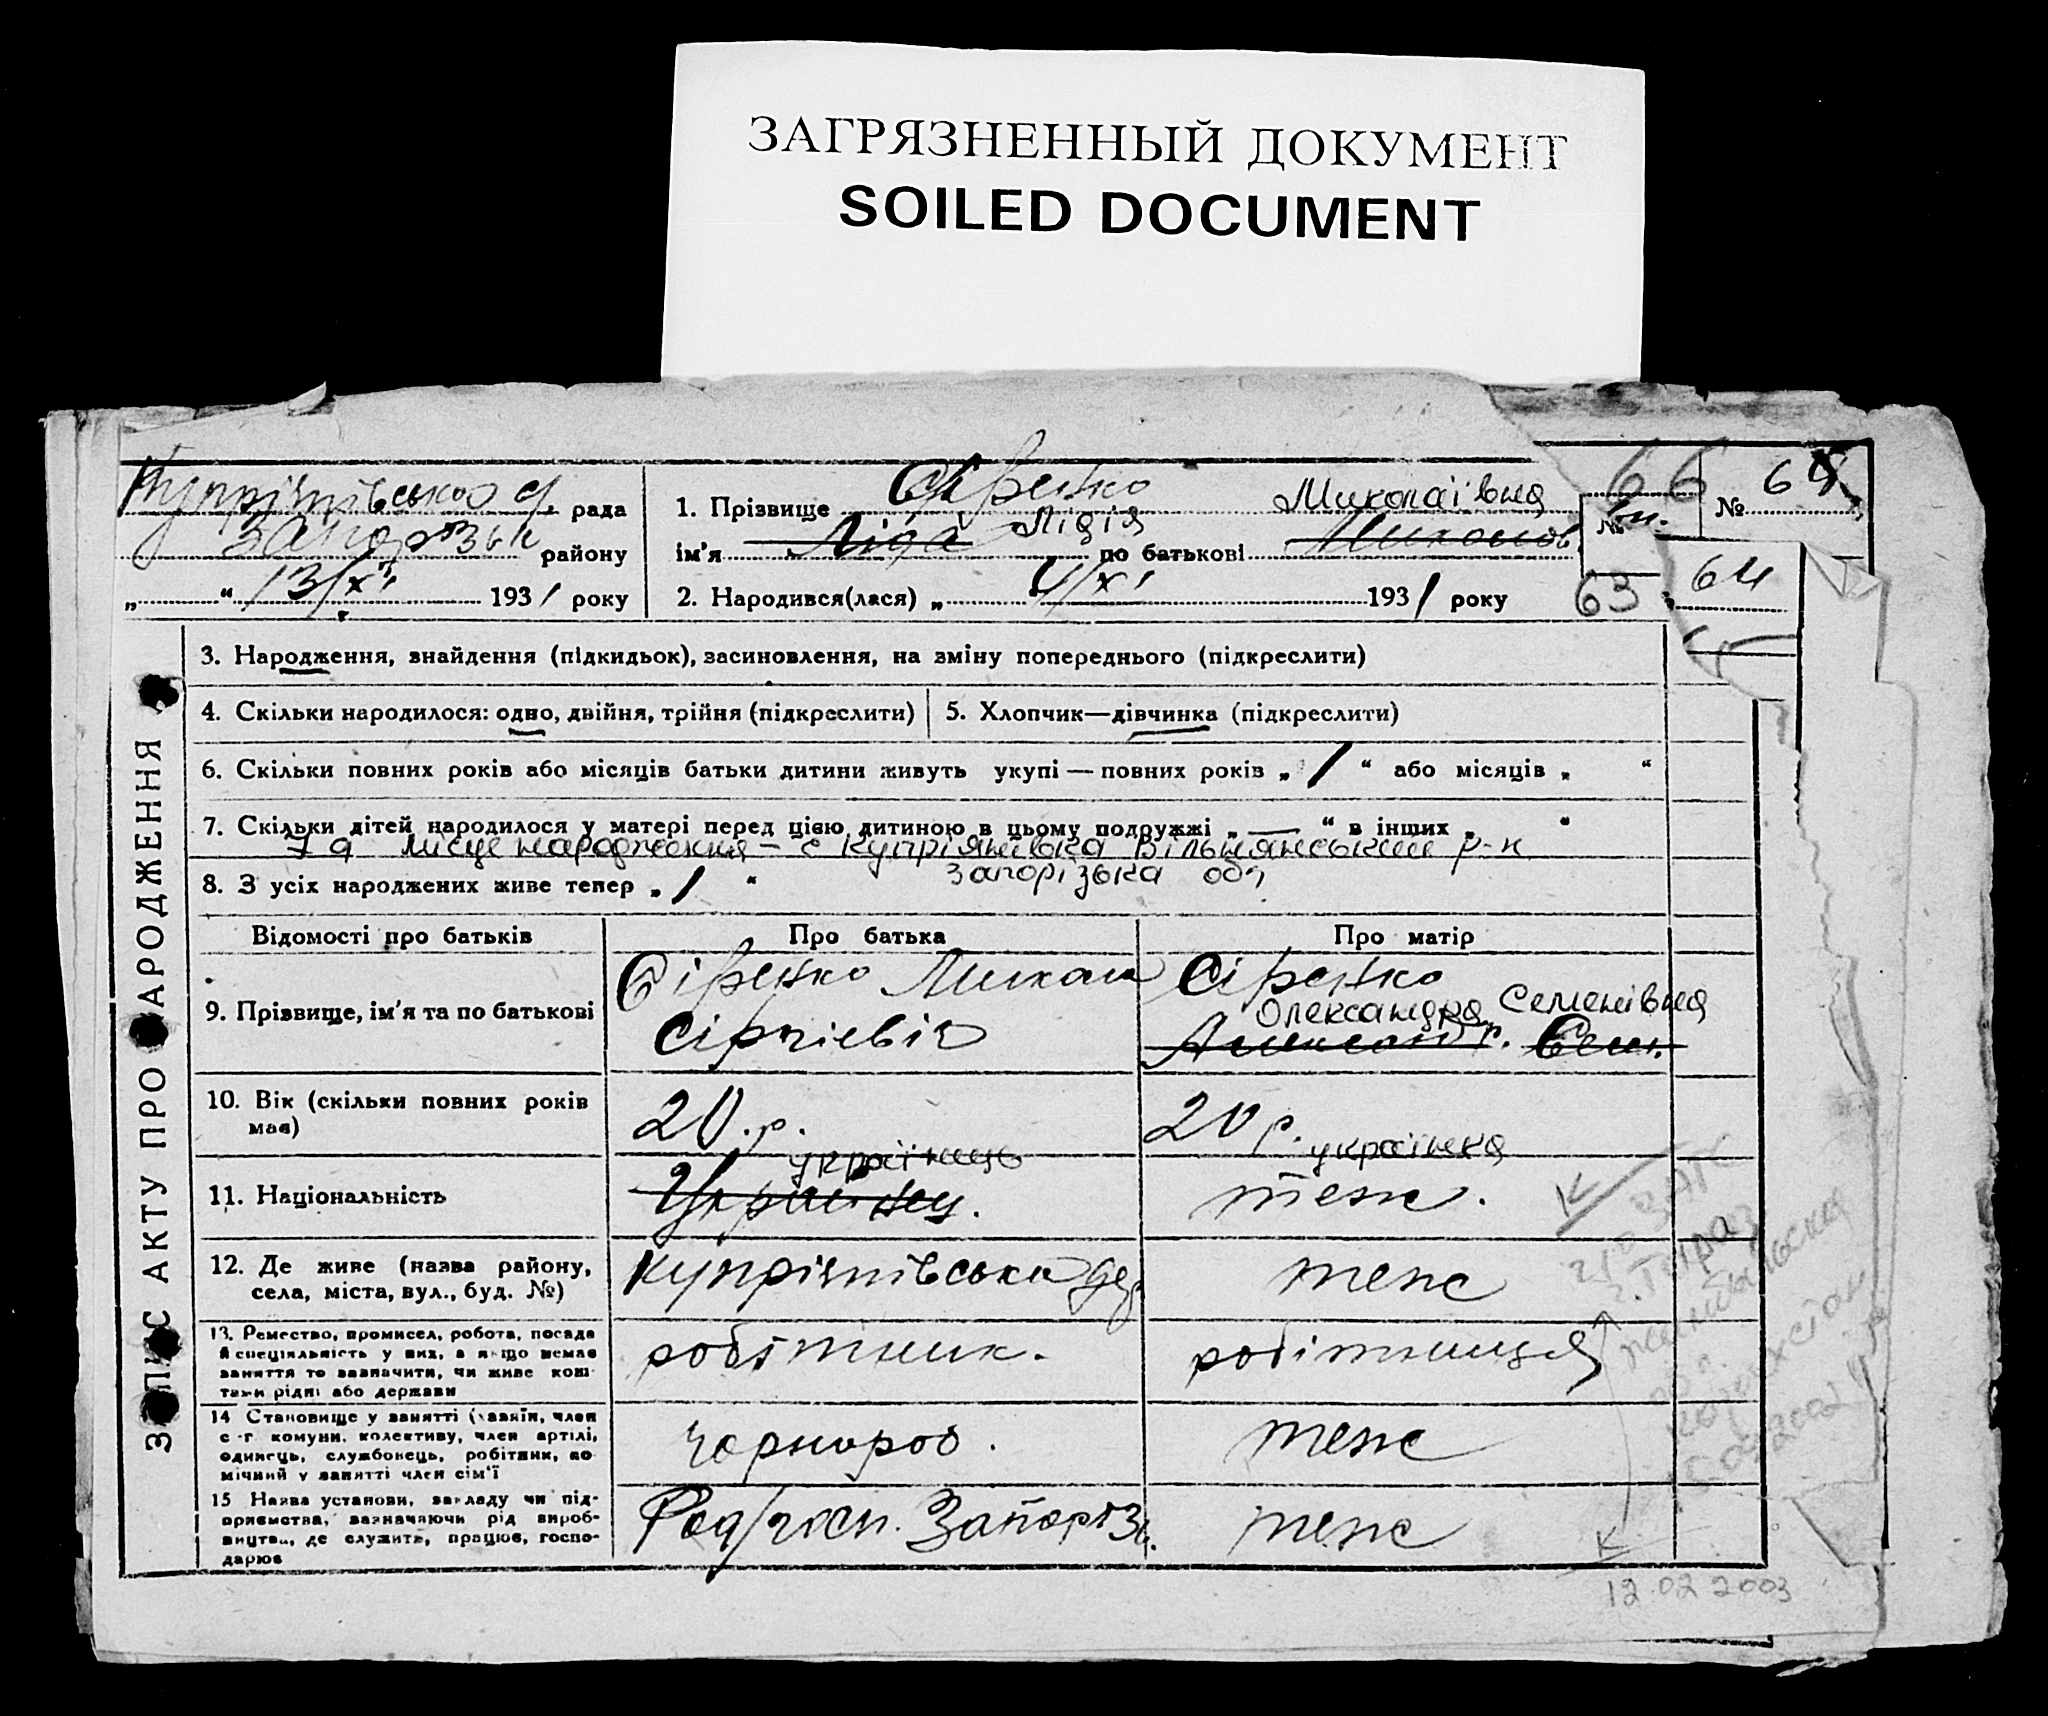 ЗАГРЯЗНЕННЫЙ ДОКУМЕНТ
SOILED DOCUMENT
Купріянівською с. рада
Запорізьк району
„ “ 13/XI 1931 року
1. Прізвище Сіренко
ім'я Ліда Лідія по батькові Миколаївна
2. Народився(лася) „ 4/XI 1931 року
66 № 64
№
63 64
ЗАПИС АКТУ ПРО НАРОДЖЕННЯ
3. Народження, знайдення (підкидьок), засиновлення, на зміну попереднього (підкреслити)
4. Скільки народилося: одно, двійня, трійня (підкреслити)
5. Хлопчик—дівчинка (підкреслити)
6. Скільки повних років або місяців батьки дитини живуть укупі — повних років „ 1 “ або місяців „ “
7. Скільки дітей народилося у матері перед цією дитиною в цьому подружжі „ — “ в інших „ “
7а місце народження – с Купріянівка Вільнянський р-н
Запорізька обл
8. З усіх народжених живе тепер „ 1 “
Відомості про батьків
Про батька
Про матір
9. Прізвище, ім'я та по батькові
Сіренко Микола
Сіргієвіч
Сіренко
Олександра Семенівна
Александр. Сем.
10. Вік (скільки повних років має)
20.р.
20 р.
11. Національність
українець
Украінец.
українка
теж.
12. Де живе (назва району,
села, міста, вул., буд. №)
Купріянівська
теж
13. Ремество, промисел, робота, посада
й спеціяльність у них, а якщо немає
заняття то зазначити, чи живе кош-
тами рідні або держави
робітник.
робітниця
14 Становище у занятті (хазяїн, член
с.-г. комуни, колективу, член артілі,
одинець, службовець, робітник, по-
мічний у занятті член сім'ї
чорнороб.
теж
15 Назва установи, закладу чи під-
приємства, зазначаючи рід вироб-
ництва, де служить, працює, госпо-
дарює
Рад/госп. Запоріз.
теж
12.02 2003